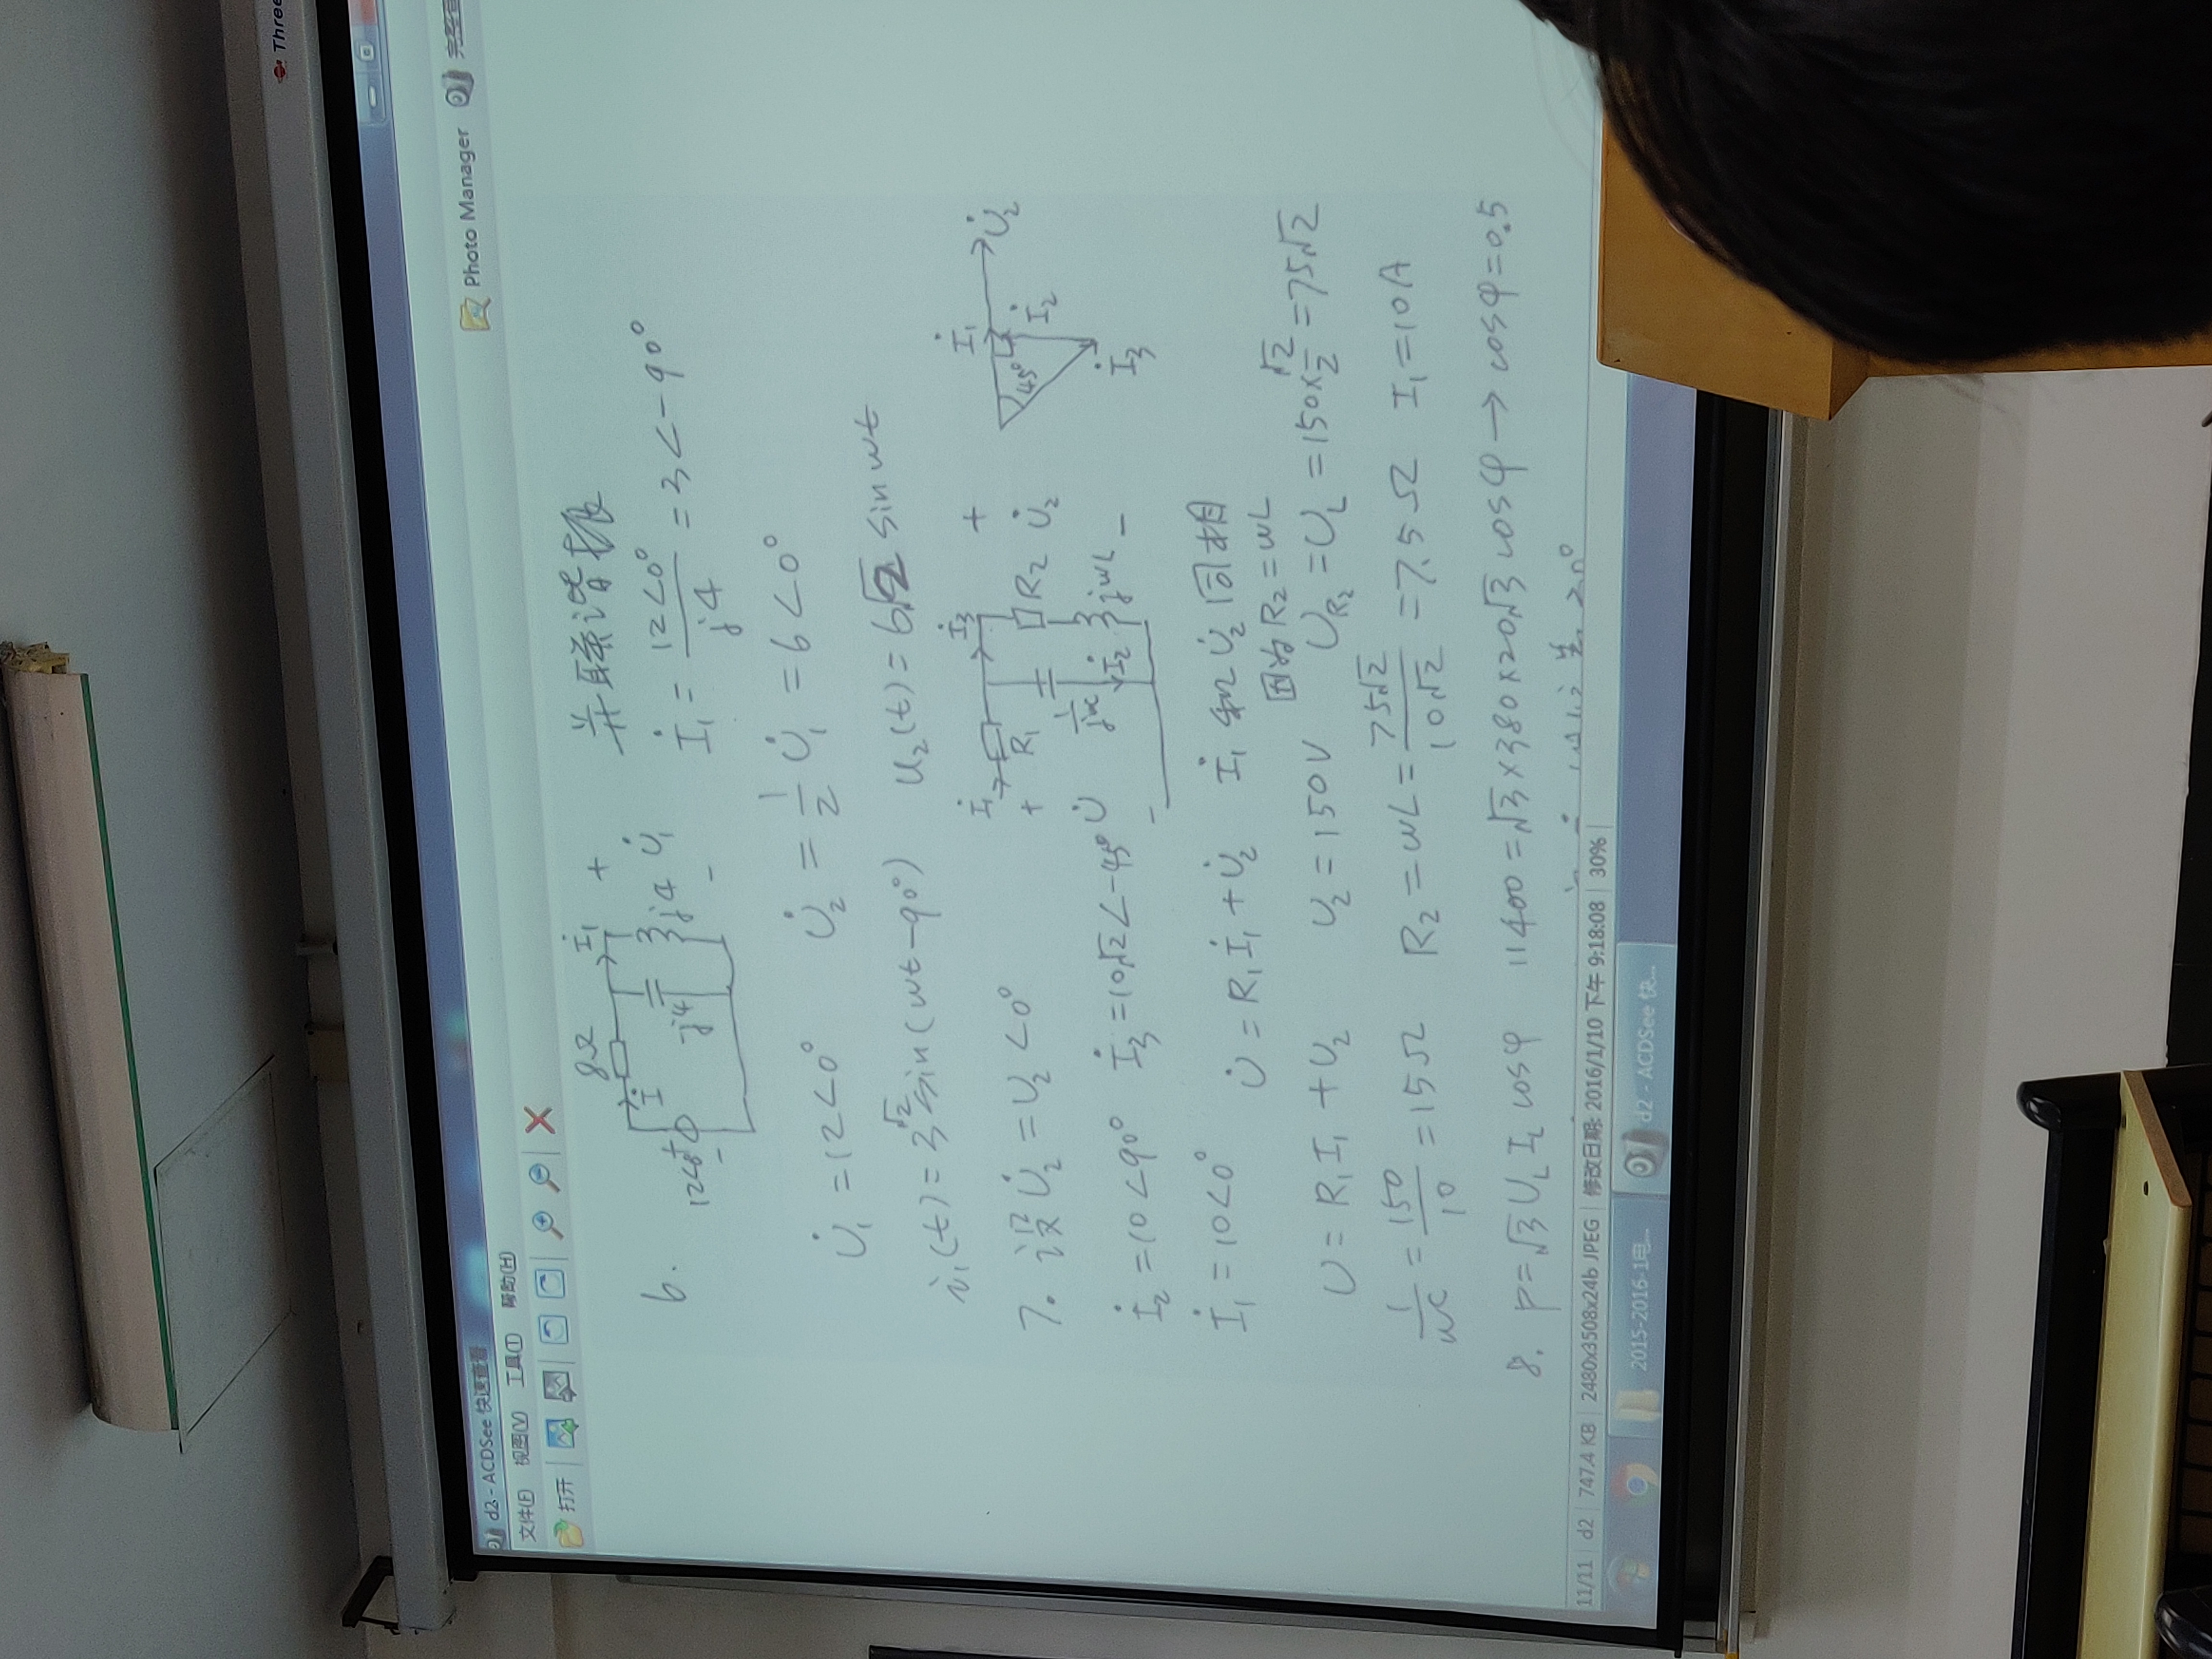 Three
d2 - ACDSee 快速查看
文件(F) 视图(V) 工具(T) 帮助(H)
Photo Manager
打开
6.
8Ω
İ
İ₁
+
12<0°
+
-
-j4
j4
U̇₁
-
并联谐振
İ₁ = 12<0° / j4 = 3<-90°
U̇₁ = 12<0° U̇₂ = 1/2 U̇₁ = 6<0°
i₁(t) = 3√2 sin(wt-90°) u₂(t) = 6√2 sin wt
7. 设 U̇₂ = U₂<0°
İ₁
R₁
İ₃
+
+
R₂
U̇₂
U̇
1/jwc
İ₂
jwL
-
-
İ₁
U̇₂
45°
İ₂
İ₃
İ₂ = 10<90° İ₃ = 10√2<-45°
İ₁ = 10<0° U̇ = R₁İ₁ + U̇₂ İ₁ 和 U̇₂ 同相
因为 R₂ = wL
U = R₁I₁ + U₂ U₂ = 150V U_R₂ = U_L = 150×√2/2 = 75√2
1/wc = 150/10 = 15Ω R₂ = wL = 75√2/10√2 = 7.5Ω I₁ = 10A
8. P = √3 U_L I_L cosφ 11400 = √3×380×20√3 cosφ → cosφ = 0.5
11/11 d2 747.4 KB 2480x3508x24b JPEG 修改日期: 2016/1/10 下午 9:18:08 30%
2015-2016-1电... d2 - ACDSee 快...